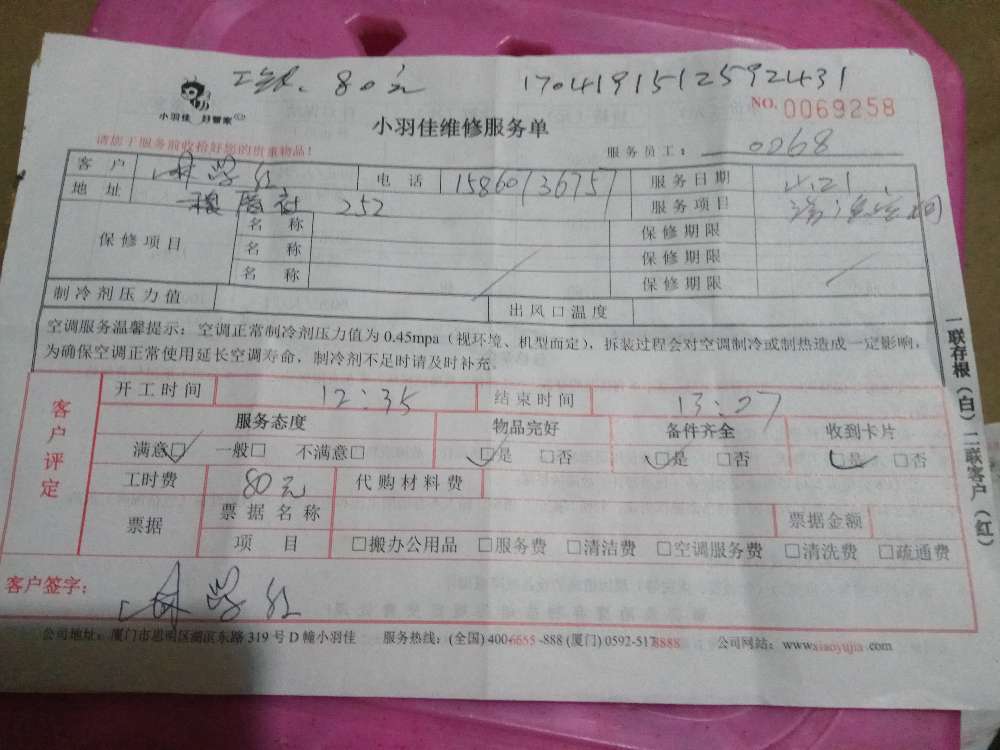 80元 1704191512592431
小羽佳 好管家
NO. 0069258
小羽佳维修服务单
请您于服务前收拾好您的贵重物品!
服务员工: 0268
客户 电话 15860736757 服务日期 4.21
地址 252 服务项目
保修项目 名称 保修期限
名称 保修期限
名称 保修期限
制冷剂压力值 出风口温度
空调服务温馨提示:空调正常制冷剂压力值为0.45mpa(视环境、机型而定),拆装过程会对空调制冷或制热造成一定影响,
为确保空调正常使用延长空调寿命,制冷剂不足时请及时补充。
客户评定
开工时间 12:35 结束时间 13:27
服务态度 物品完好 备件齐全 收到卡片
满意□ 一般□ 不满意□ □是 □否 □是 □否 □是 □否
工时费 80元 代购材料费
票据 票据名称 票据金额
项目 □搬办公用品 □服务费 □清洁费 □空调服务费 □清洗费 □疏通费
客户签字:
公司地址:厦门市思明区湖滨东路319号D幢小羽佳 服务热线:(全国)400-6655-888 (厦门)0592-5178888 公司网站:www.xiaoyujia.com
一联存根(白)二联客户(红)